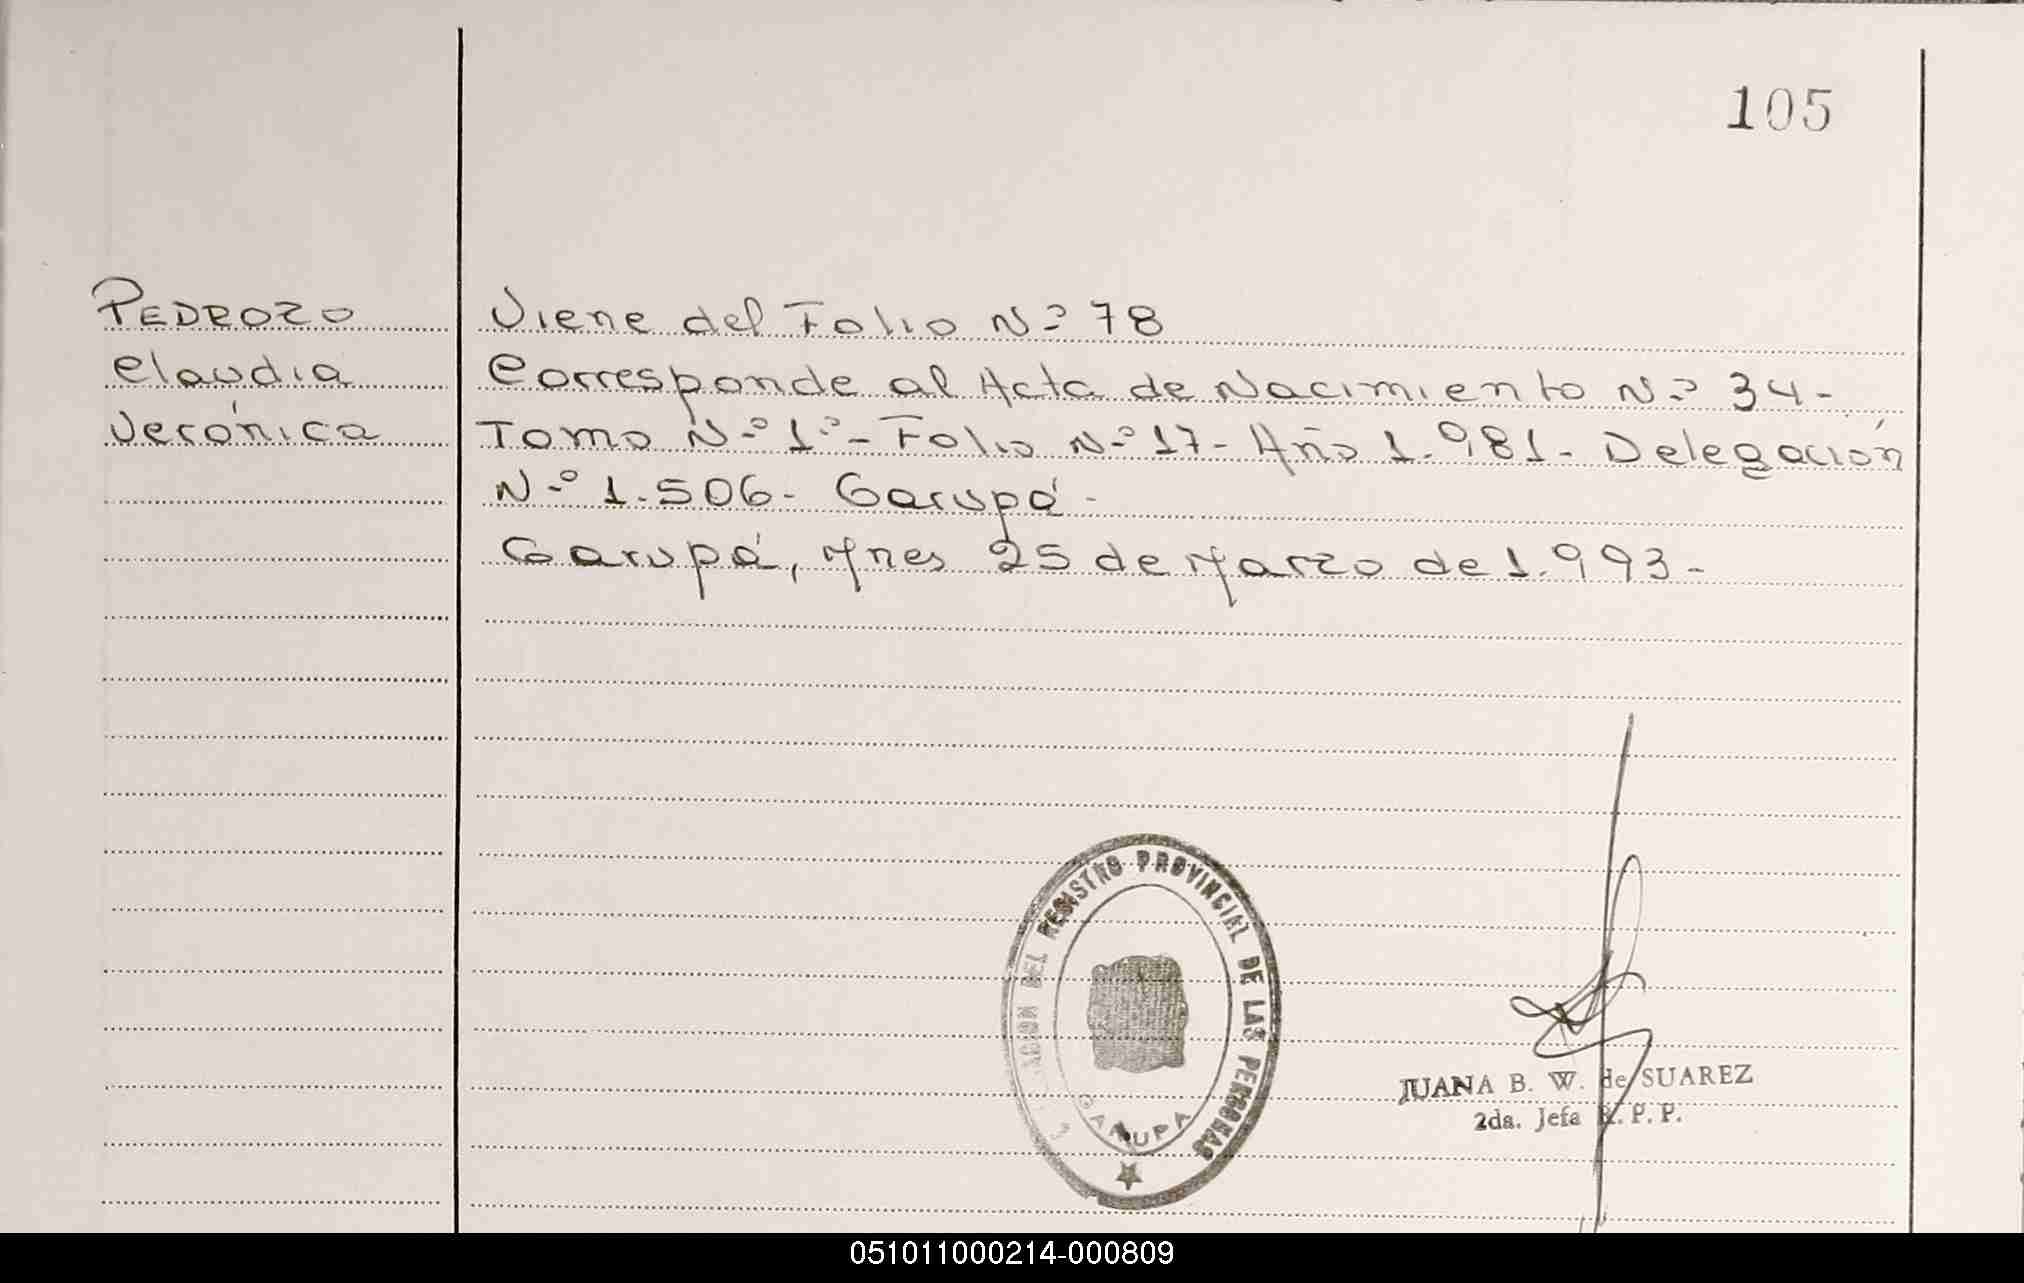 105
PEDROZO
Claudia
Verónica
Viene del Folio Nº 78
Corresponde al Acta de Nacimiento Nº 34-
Tomo Nº 1º- Folio Nº 17- Año 1.981- Delegación
Nº 1.506- Garupá-
Garupá, Mnes 25 de Marzo de 1.993-
DEL REGISTRO PROVINCIAL DE LAS PERSONAS
GARUPA
JUANA B. W. de SUAREZ
2da. Jefa R. P. P.
051011000214-000809